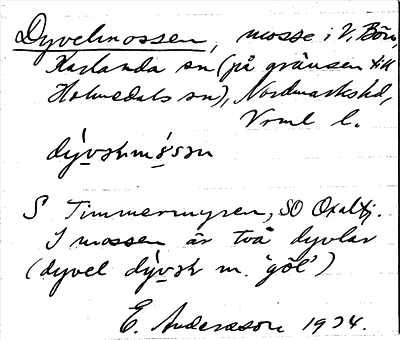 Dyvelmossen, mosse i V. Bön,
Karlanda sn (på gränsen till
Holmedals sn), Nordmarks hd,
Vrml l.
S Timmermyren, SO Oxaltj.
I mossen är två dyvlar
(dyvel m. 'göl')
E. Andersson 1934.